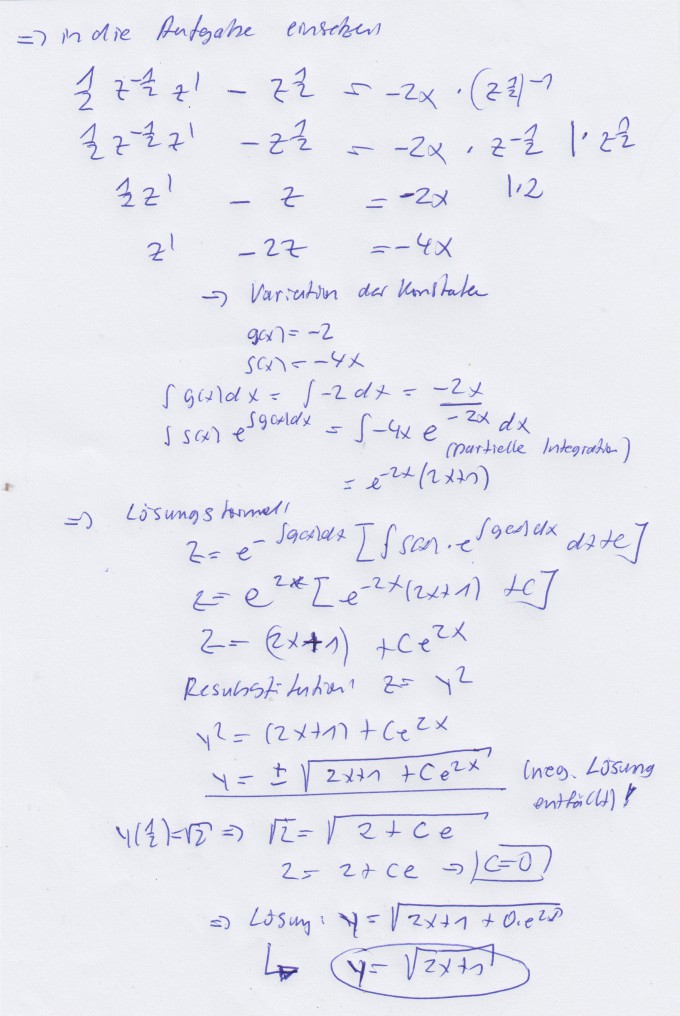 => in die Aufgabe einsetzen
1/2 z^(-1/2) z' - z^(1/2) = -2x · (z^(1/2))^(-1)
1/2 z^(-1/2) z' - z^(1/2) = -2x · z^(-1/2) |· z^(1/2)
1/2 z' - z = -2x |·2
z' - 2z = -4x
=> Variation der Konstanten
g(x) = -2
s(x) = -4x
∫ g(x) dx = ∫ -2 dx = -2x
∫ s(x) e^(∫g(x)dx) = ∫ -4x e^(-2x) dx
(partielle Integration)
= e^(-2x) (2x+1)
=> Lösungsformel:
z = e^(-∫g(x)dx) [∫ s(x) · e^(∫g(x)dx) dx + c]
z = e^(2x) [e^(-2x) (2x+1) + C]
z = (2x+1) + C e^(2x)
Resubstitution: z = y^2
y^2 = (2x+1) + C e^(2x)
y = ± √(2x+1 + C e^(2x)) (neg. Lösung
entfällt)!
y(1/2) = √2 => √2 = √(2 + C e)
2 = 2 + C e => C=0
=> Lösung: y = √(2x+1 + 0·e^(2x))
↳ y = √(2x+1)